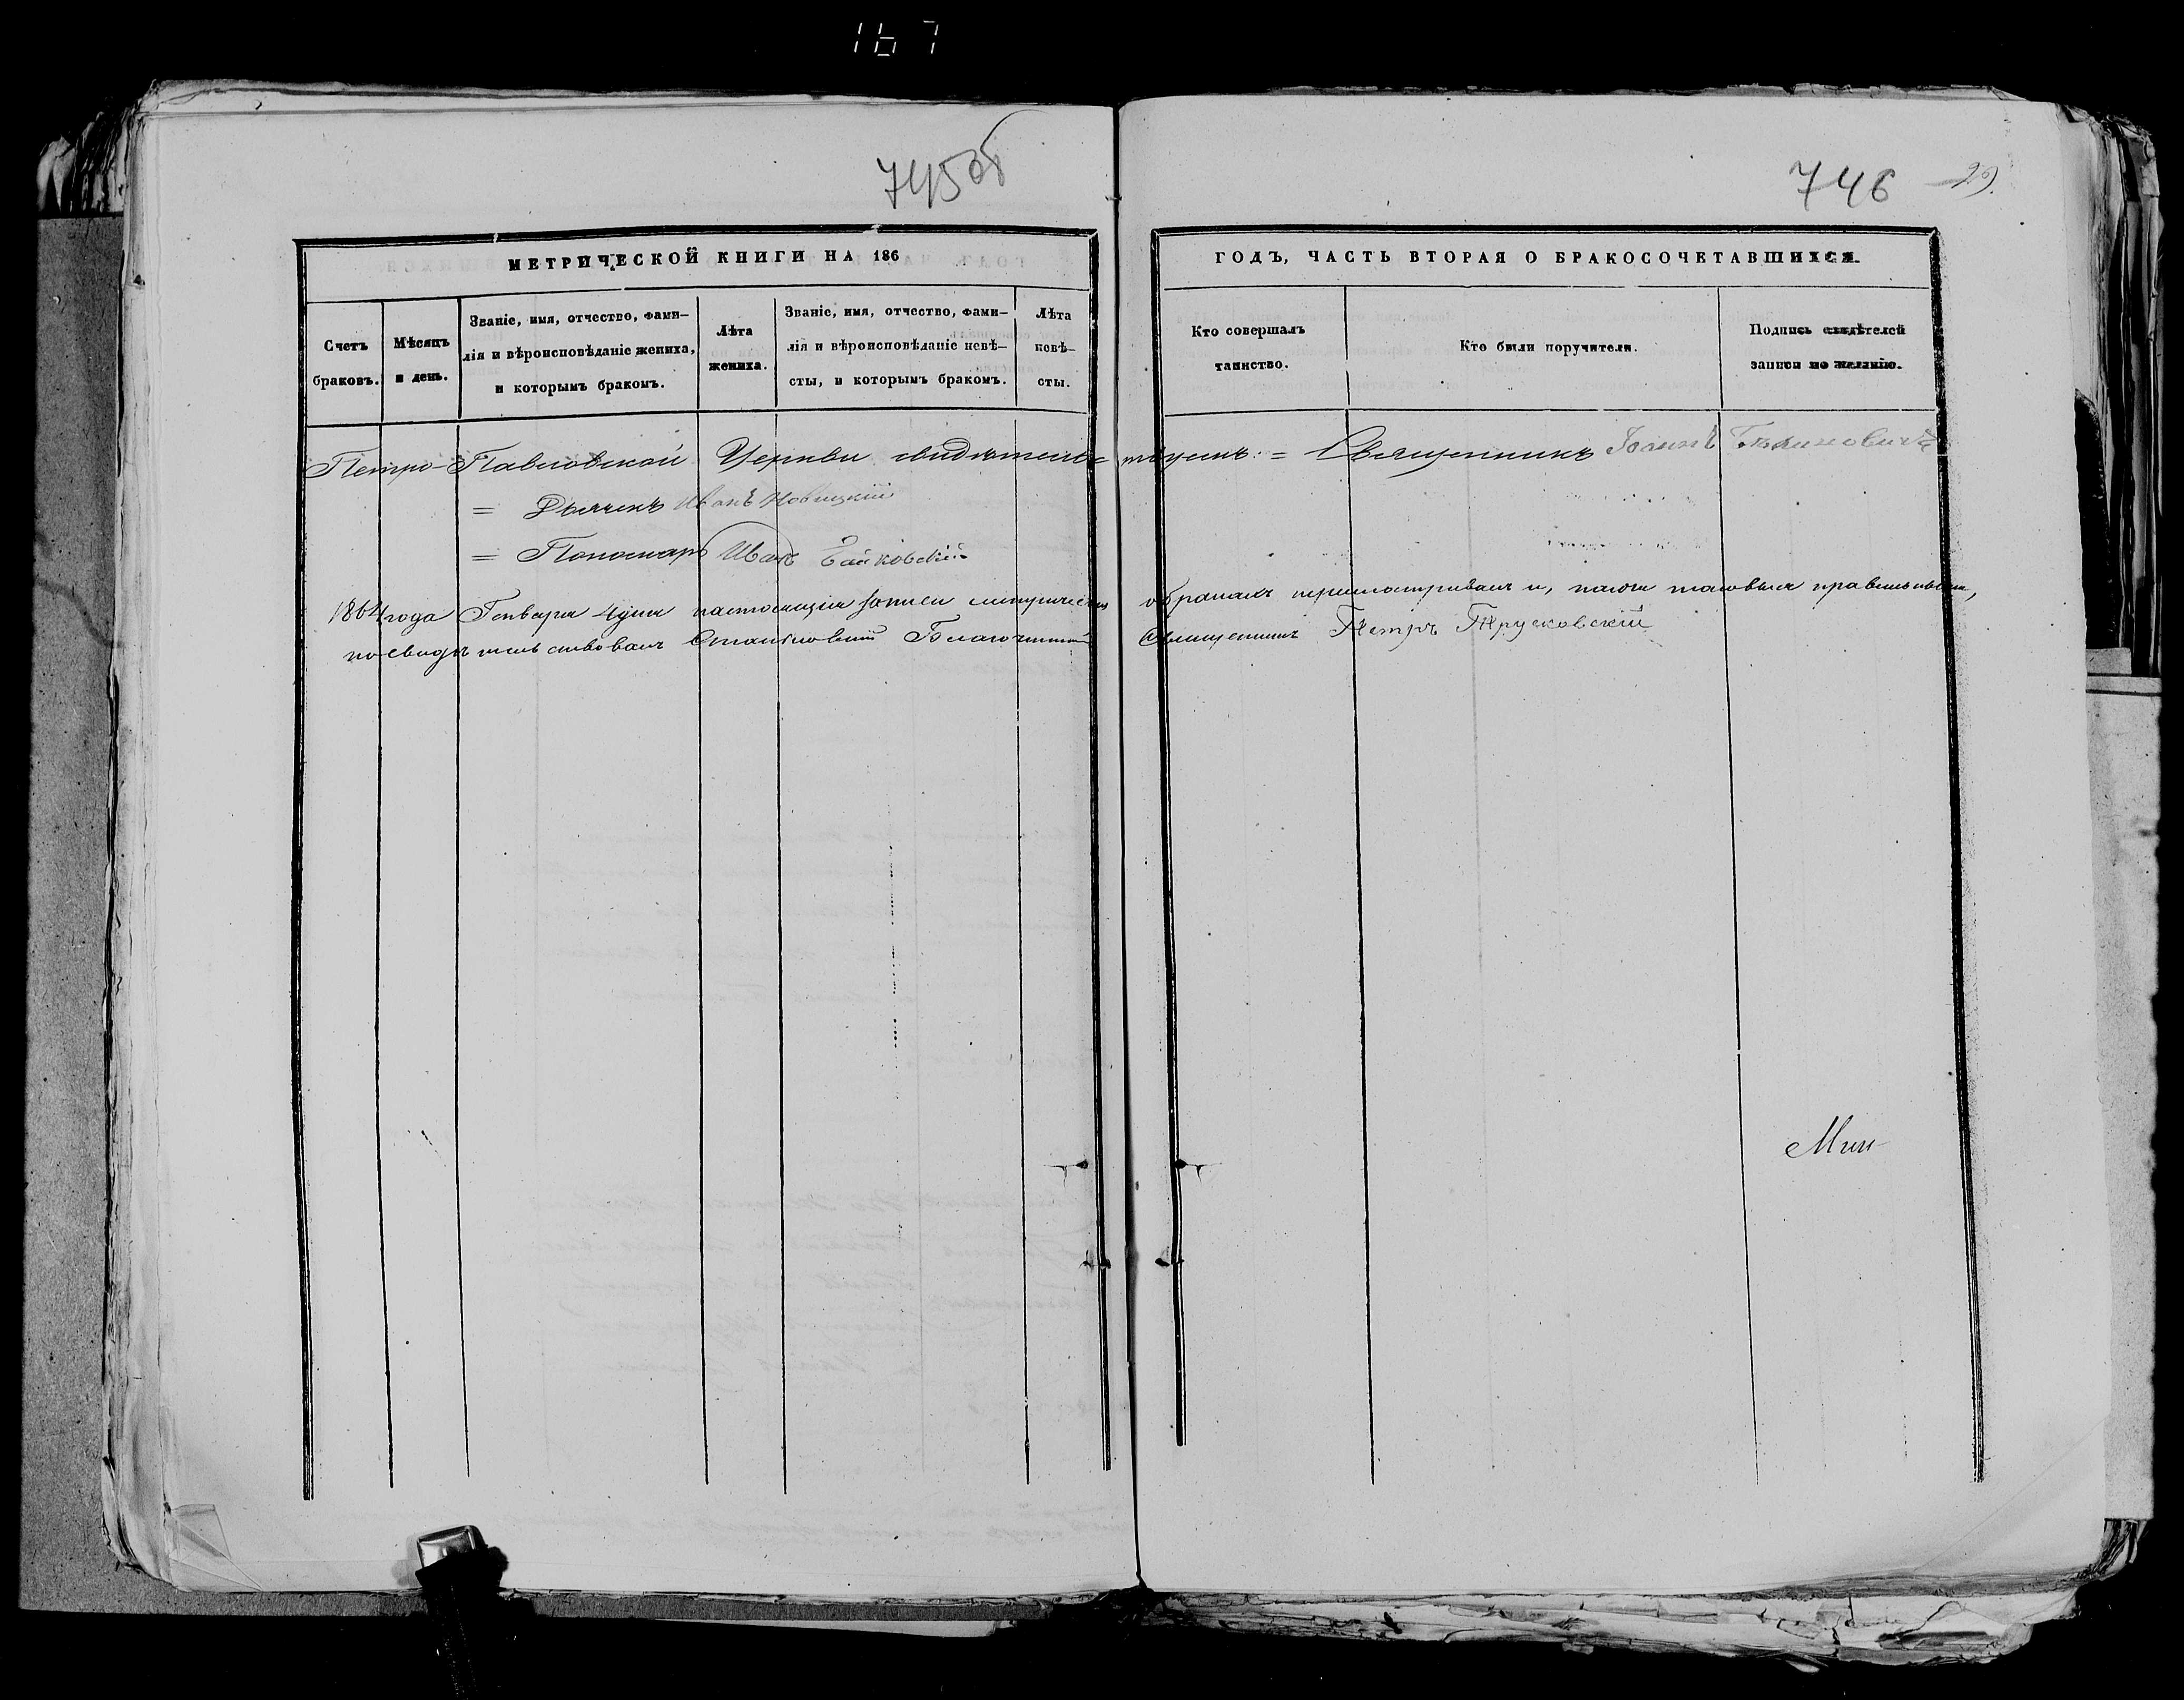 167
745об
746 29.
МЕТРИЧЕСКОЙ КНИГИ НА 186
ГОДЪ, ЧАСТЬ ВТОРАЯ О БРАКОСОЧЕТАВШИХСЯ.
Счетъ
браковъ.
Мѣсяцъ
и день.
Званіе, имя, отчество, фами-
лія и вѣроисповѣданіе жениха,
и которымъ бракомъ.
Лѣта
жениха.
Званіе, имя, отчество, фами-
лія и вѣроисповѣданіе невѣ-
сты, и которымъ бракомъ.
Лѣта
невѣ-
сты.
Кто совершалъ
таинство.
Кто были поручители.
Подпись свидѣтелей
записи по желанію.
Петро-Павловской Церкви свидѣтельствуемъ: = Священникъ Іоаннъ
= Дьячекъ Иванъ Новицкій
= Пономарь Иванъ
1864 года Генваря 4 дня настоящія записи метрическія о бракахъ пересматривалъ и, нашедъ таковыя правильными,
посвидѣтельствовалъ Благочинный Священникъ Петръ Трусковскій
Мин